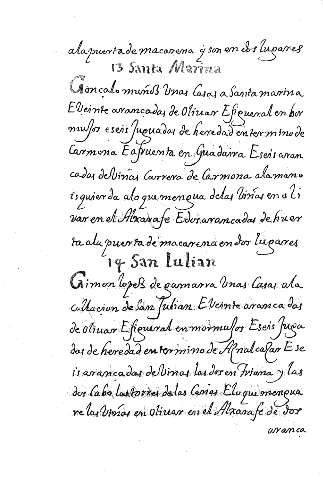 ala puerta de macarena y son en dos lugares
13 Santa Marina
Gonçalo muñoz Unas Casas a Santa marina
E Veinte arançadas de Oliuar E figueral en bor
mujos e seis Jugadas de heredad en termino de
Carmona E afruenta en Guadaira E seis aran
cadas de Viñas Carrera de Carmona ala mano
izquierda alo que mengua de las Viñas en oli
uar en el Alxarafe E dos arançadas de huer
ta ala puerta de macarena en dos lugares
14 San Iulian
Gimon lopez de gamarra Unas Casas ala
collacion de San Julian. E Veinte arancadas
de Oliuar E figueral en mormujos E seis Juga
das de heredad en termino de Aznalcazar E se
is arancadas de Vinas las dos en triana y las
dos Cabo las torres de las Cañas E lo que mengua
re las Viñas en Oliuar en el Alxarafe de dos
aranca